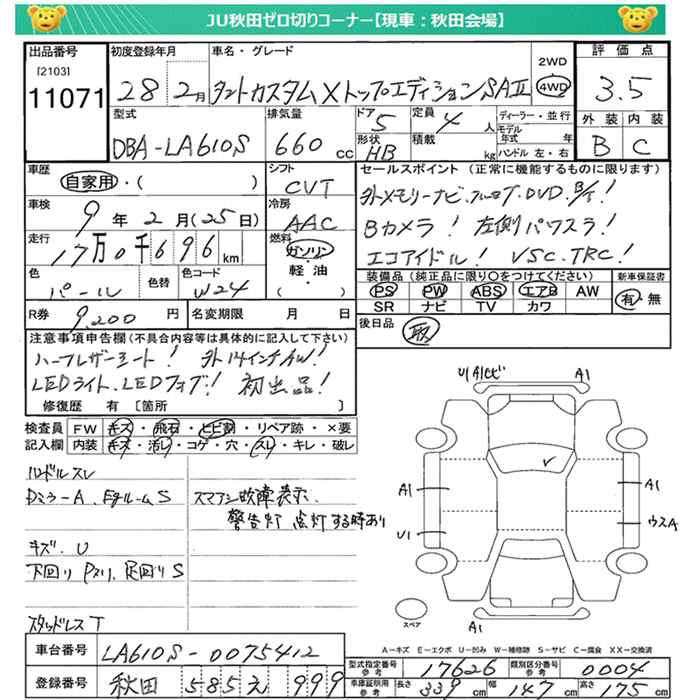 JU秋田ゼロ切りコーナー【現車：秋田会場】
出品番号 初度登録年月 車名・グレード 2WD 評価点
[2103] 11071 28 2月 タントカスタムXトップエディションSAⅡ 4WD 3.5
型式 排気量 ドア 定員 ディーラー・並行 外装 内装
DBA-LA610S 660cc 5 4人 モデル年式 年 B C
形状 積載 kg ハンドル 左・右
HB
車歴 シフト セールスポイント（正常に機能するものに限ります）
自家用・( ) CVT 外メモリーナビ.フルセグ.DVD.B/T!
車検 冷房 Bカメラ! 左側パワスラ!
9年2月(25日) AAC エコアイドル! VSC.TRC!
走行 燃料 装備品（純正品に限り○をつけてください） 新車保証書
17万0千696km ガソリン PS PW ABS エアB AW 有・無
軽・油 SR ナビ TV カワ
( )
色 色替 色コード 後日品
パール W24 取
R券 9,200円 名変期限 月 日
注意事項申告欄（不具合内容等は具体的に記入して下さい）
ハーフレザーシート! 外14インチAW!
LEDライト.LEDフォグ! 初出品!
修復歴 有 [箇所 ]
検査員 FW キズ・飛石・ヒビ割・リペア跡・×要
記入欄 内装 キズ・汚レ・コゲ・穴・スレ・キレ・破レ
ハンドルスレ
Dミラー A. Eルーム S スマアシ故障表示.
警告灯 点灯する時あり
キズ.U
下回りPスリ、足回りS
スタッドレスT
U1 A1ヒビ A1
A1 A1
U1 ウスA
A1
スペア
A－キズ E－エクボ U－凹み W－補修跡 S－サビ C－腐食 XX－交換済
車台番号 LA610S-0075412
型式指定番号 参考 17626 類別区分番号 参考 0004
登録番号 秋田 585 え 999
車庫証明用 参考 長さ 339cm 幅 147cm 高さ 175cm